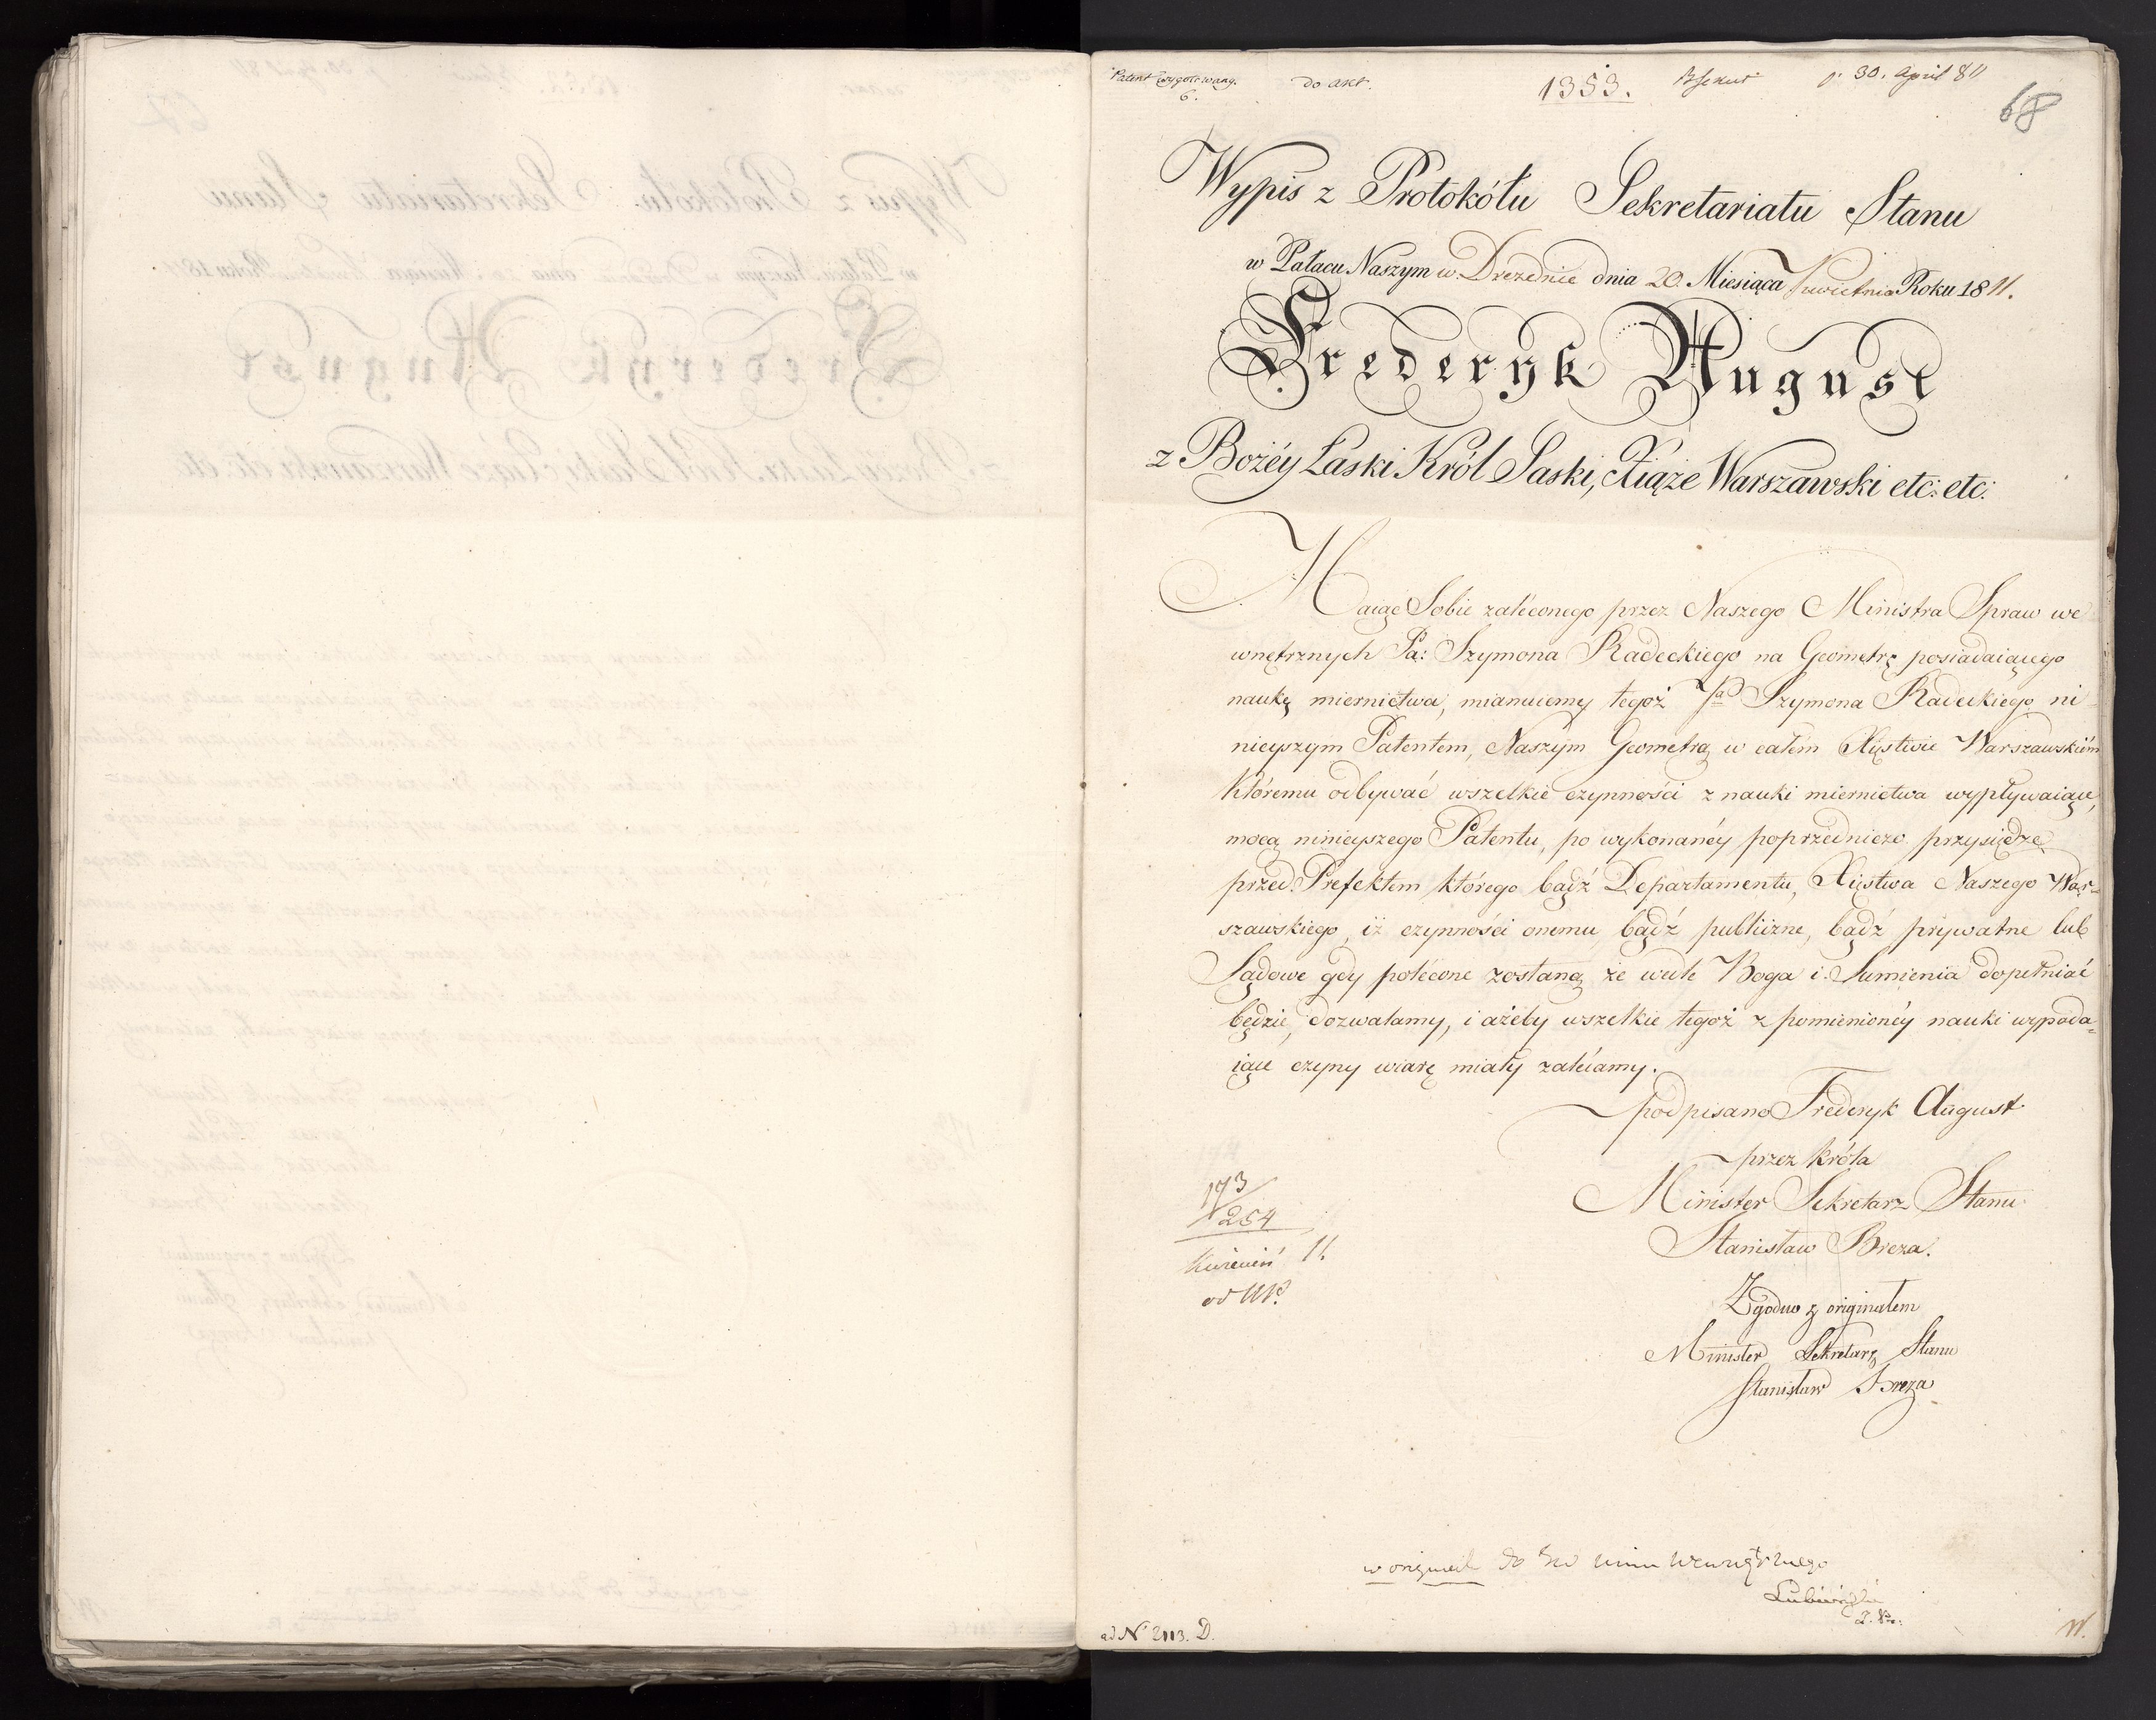 Patent wygotowany.
6.
do akt.
1353.
30. April 811
68
Wypis z Protokółu Sekretariatu Stanu
w Pałacu Naszym w Dreznie dnia 20. Miesiąca Kwietnia Roku 1811.
Frederyk August
z Bożéy Łaski Król Saski, Xiąże Warszawski etc: etc:
Maiąc Sobie zaléconego przez Naszego Ministra Spraw we
wnętrznych Pa: Szymona Radeckiego na Geometrę posiadaiącego
naukę miernictwa, mianuiemy tegoż Pa Szymona Radeckiego ni
nieyszym Patentem, Naszym Geometrą w całém Xięstwie Warszawskiém
któremu odbywać wszelkie czynności z nauki miernictwa wypływaiące,
mocą ninieyszego Patentu, po wykonanéy poprzedniczo przysiędze
przed Prefektem którego bądź Departamentu, Xięstwa Naszego War-
szawskiego, iż czynności onemu bądź publiczne, bądź prywatne lub
Sądowe gdy polécone zostaną że wedle Boga i Sumienia dopełniać
będzie, dozwalamy, i ażeby wszelkie tegoż z pomienionéy nauki wypada-
iące czyny wiarę miały zalécamy.
podpisano Frederyk August
przez Króla
Minister Sekretarz Stanu
Stanisław Breza.
193
254
Kwiecień 11.
od
Zgodno z originałem
Minister Sekretarz Stanu
Stanisław Breza
w originale do
Lubieński
ad N 2113. D.
W.